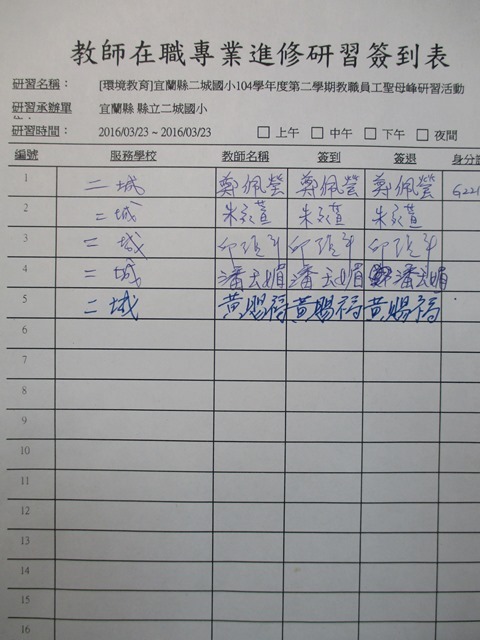 教師在職專業進修研習簽到表
研習名稱： [環境教育]宜蘭縣二城國小104學年度第二學期教職員工聖母峰研習活動
研習承辦單 宜蘭縣 縣立二城國小
研習時間： 2016/03/23 ~ 2016/03/23 □ 上午 □ 中午 □ 下午 □ 夜間
編號 服務學校 教師名稱 簽到 簽退 身分
1 二城 鄭佩瑩 鄭佩瑩 鄭佩瑩
2 二城 朱
3 二城 邱
4 二城 潘玉媚 潘玉媚 潘玉媚
5 二城 黃賜福 黃賜福 黃賜福
6
7
8
9
10
11
12
13
14
15
16